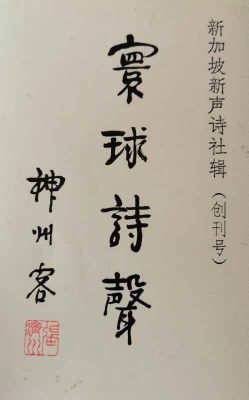 新加坡新声诗社辑(创刊号)
寰球詩聲
神州客